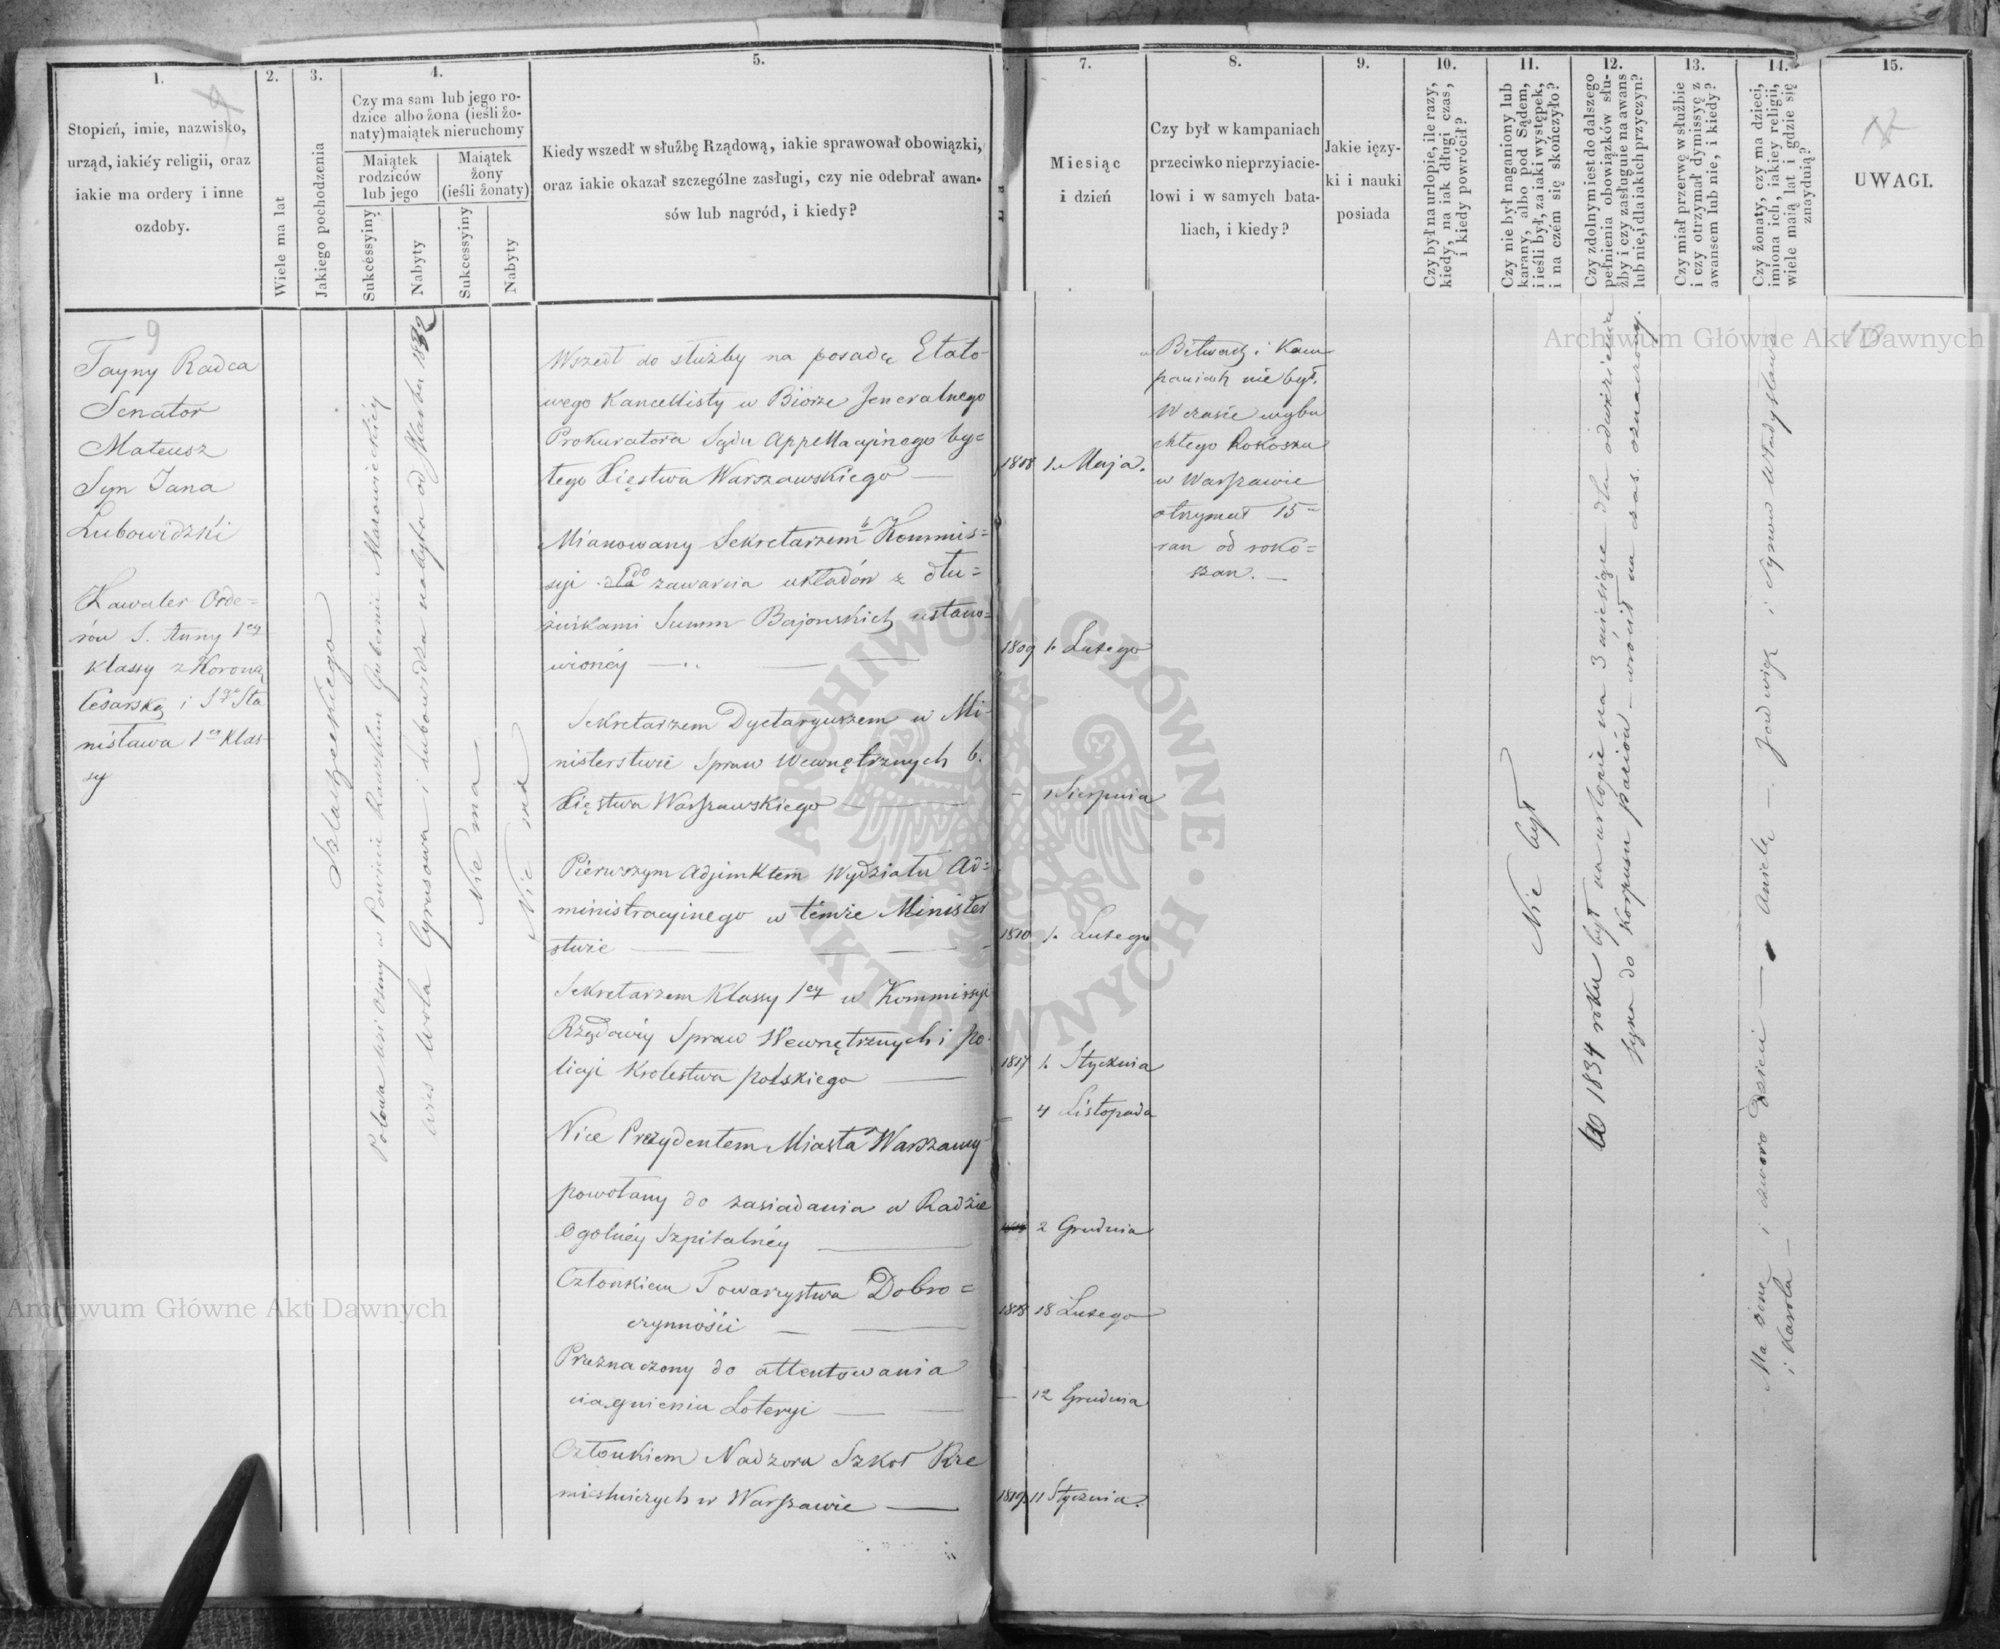 1.
Stopień, imie, nazwisko,
urząd, iakiéy religii, oraz
iakie ma ordery i inne
ozdoby.
2.
Wiele ma lat
3.
Jakiego pochodzenia
4.
Czy ma sam lub jego ro-
dzice albo żona (ieśli żo-
naty) maiątek nieruchomy
Maiątek
rodziców
lub jego
Maiątek
żony
(ieśli żonaty)
Sukcessyiny
Nabyty
Sukcessyiny
Nabyty
5.
Kiedy wszedł w służbę Rządową, iakie sprawował obowiązki,
oraz iakie okazał szczególne zasługi, czy nie odebrał awan-
sów lub nagród, i kiedy?
7.
Miesiąc
i dzień
8.
Czy był w kampaniach
przeciwko nieprzyiacie-
lowi i w samych bata-
liach, i kiedy?
9.
Jakie ięzy-
ki i nauki
posiada
10.
Czy był na urlopie, ile razy,
kiedy, na iak długi czas,
i kiedy powrócił?
11.
Czy nie był naganiony lub
karany, albo pod Sądem,
i ieśli był, za iaki występek,
i na czém się skończyło?
12.
Czy zdolnym iest do dalszego
pełnienia obowiązków słu-
żby i czy zasługuie na awans
lub nie, i dla iakich przyczyn?
13.
Czy miał przerwę w służbie
i czy otrzymał dymissyę z
awansem lub nie, i kiedy?
14.
Czy żonaty, czy ma dzieci,
imiona ich, iakiey religii,
wiele maią lat i gdzie się
znaydują?
15.
UWAGI.
9
Tayny Radca
Senator
Mateusz
Syn Jana
Lubowidzki
Kawaler Orde=
rów S. Anny 1ey
klassy z Koroną
Cesarską i Sgo Sta
nisława 1ey Klas-
sy
Szlacheckiego
Połowa wsi Osiny w Powiecie Rawskim Gubernii Mazowieckiey
Wieś Wola Cyrusowa i Lubowidza nabyta od Skarbu 1832
Nie ma
Nie ma
Wszedł do służby na posadę Etato-
wego Kancellisty w Biórze Jeneralnego
Prokuratora Sądu Appellacyinego by=
łego Xięstwa Warszawskiego —
1808 1. Maja.
Mianowany Sekretarzem b Kommis=
syi do zawarcia układów z dłu=
żnikami Summ Bajońskich ustano=
wioney —
1809 1. Lutego
Sekretarzem Dyetaryuszem w Mi-
nisterstwie Spraw Wewnętrznych b.
Xięstwa Warszawskiego —
— 1 Sierpnia
Pierwszym Adjunktem Wydziału Ad=
ministracyinego w témże Minister
stwie —
1810 1. Lutego
Sekretarzem Klassy 1ey w Kommissyi
Rządowéy Spraw Wewnętrznych i Po-
licyi Krolestwa polskiego —
1817 1. Stycznia
Vice Prezydentem Miasta Warszawy
— 4 Listopada
powołany do zasiadania w Radzie
Ogolnéy Szpitalnéy —
2 Grudnia
Członkiem Towarzystwa Dobro=
czynności —
1818 18 Lutego
Przeznaczony do attentowania
ciągnieniu Loteryi —
— 12 Grudnia
Członkiem Nadzoru Szkoł Rze
mieślniczych w Warszawie —
1819 11 Stycznia.
w Bitwach i Kam
paniach nie był.
W czasie wybu
chłego Rokoszu
w Warszawie
otrzymał 15
ran od roko=
szan. —
Nie był
W 1834 roku był na urlopie na 3 miesiące dla odwiedzenia
syna do Korpusu Paziów — wrócił na czas oznaczony.
Ma żonę — i czworo Dzieci — Anielę —. Jadwigę i Synów Władysława
i Karola —
10
ARCHIWUM GŁÓWNE AKT DAWNYCH
Archiwum Główne Akt Dawnych
Archiwum Główne Akt Dawnych